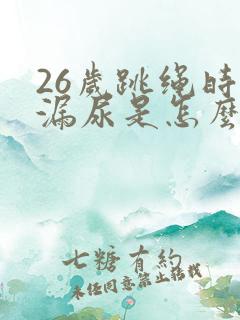 26歲跳绳時
漏尿是怎麼
七糖有約
未经同意禁止搭載